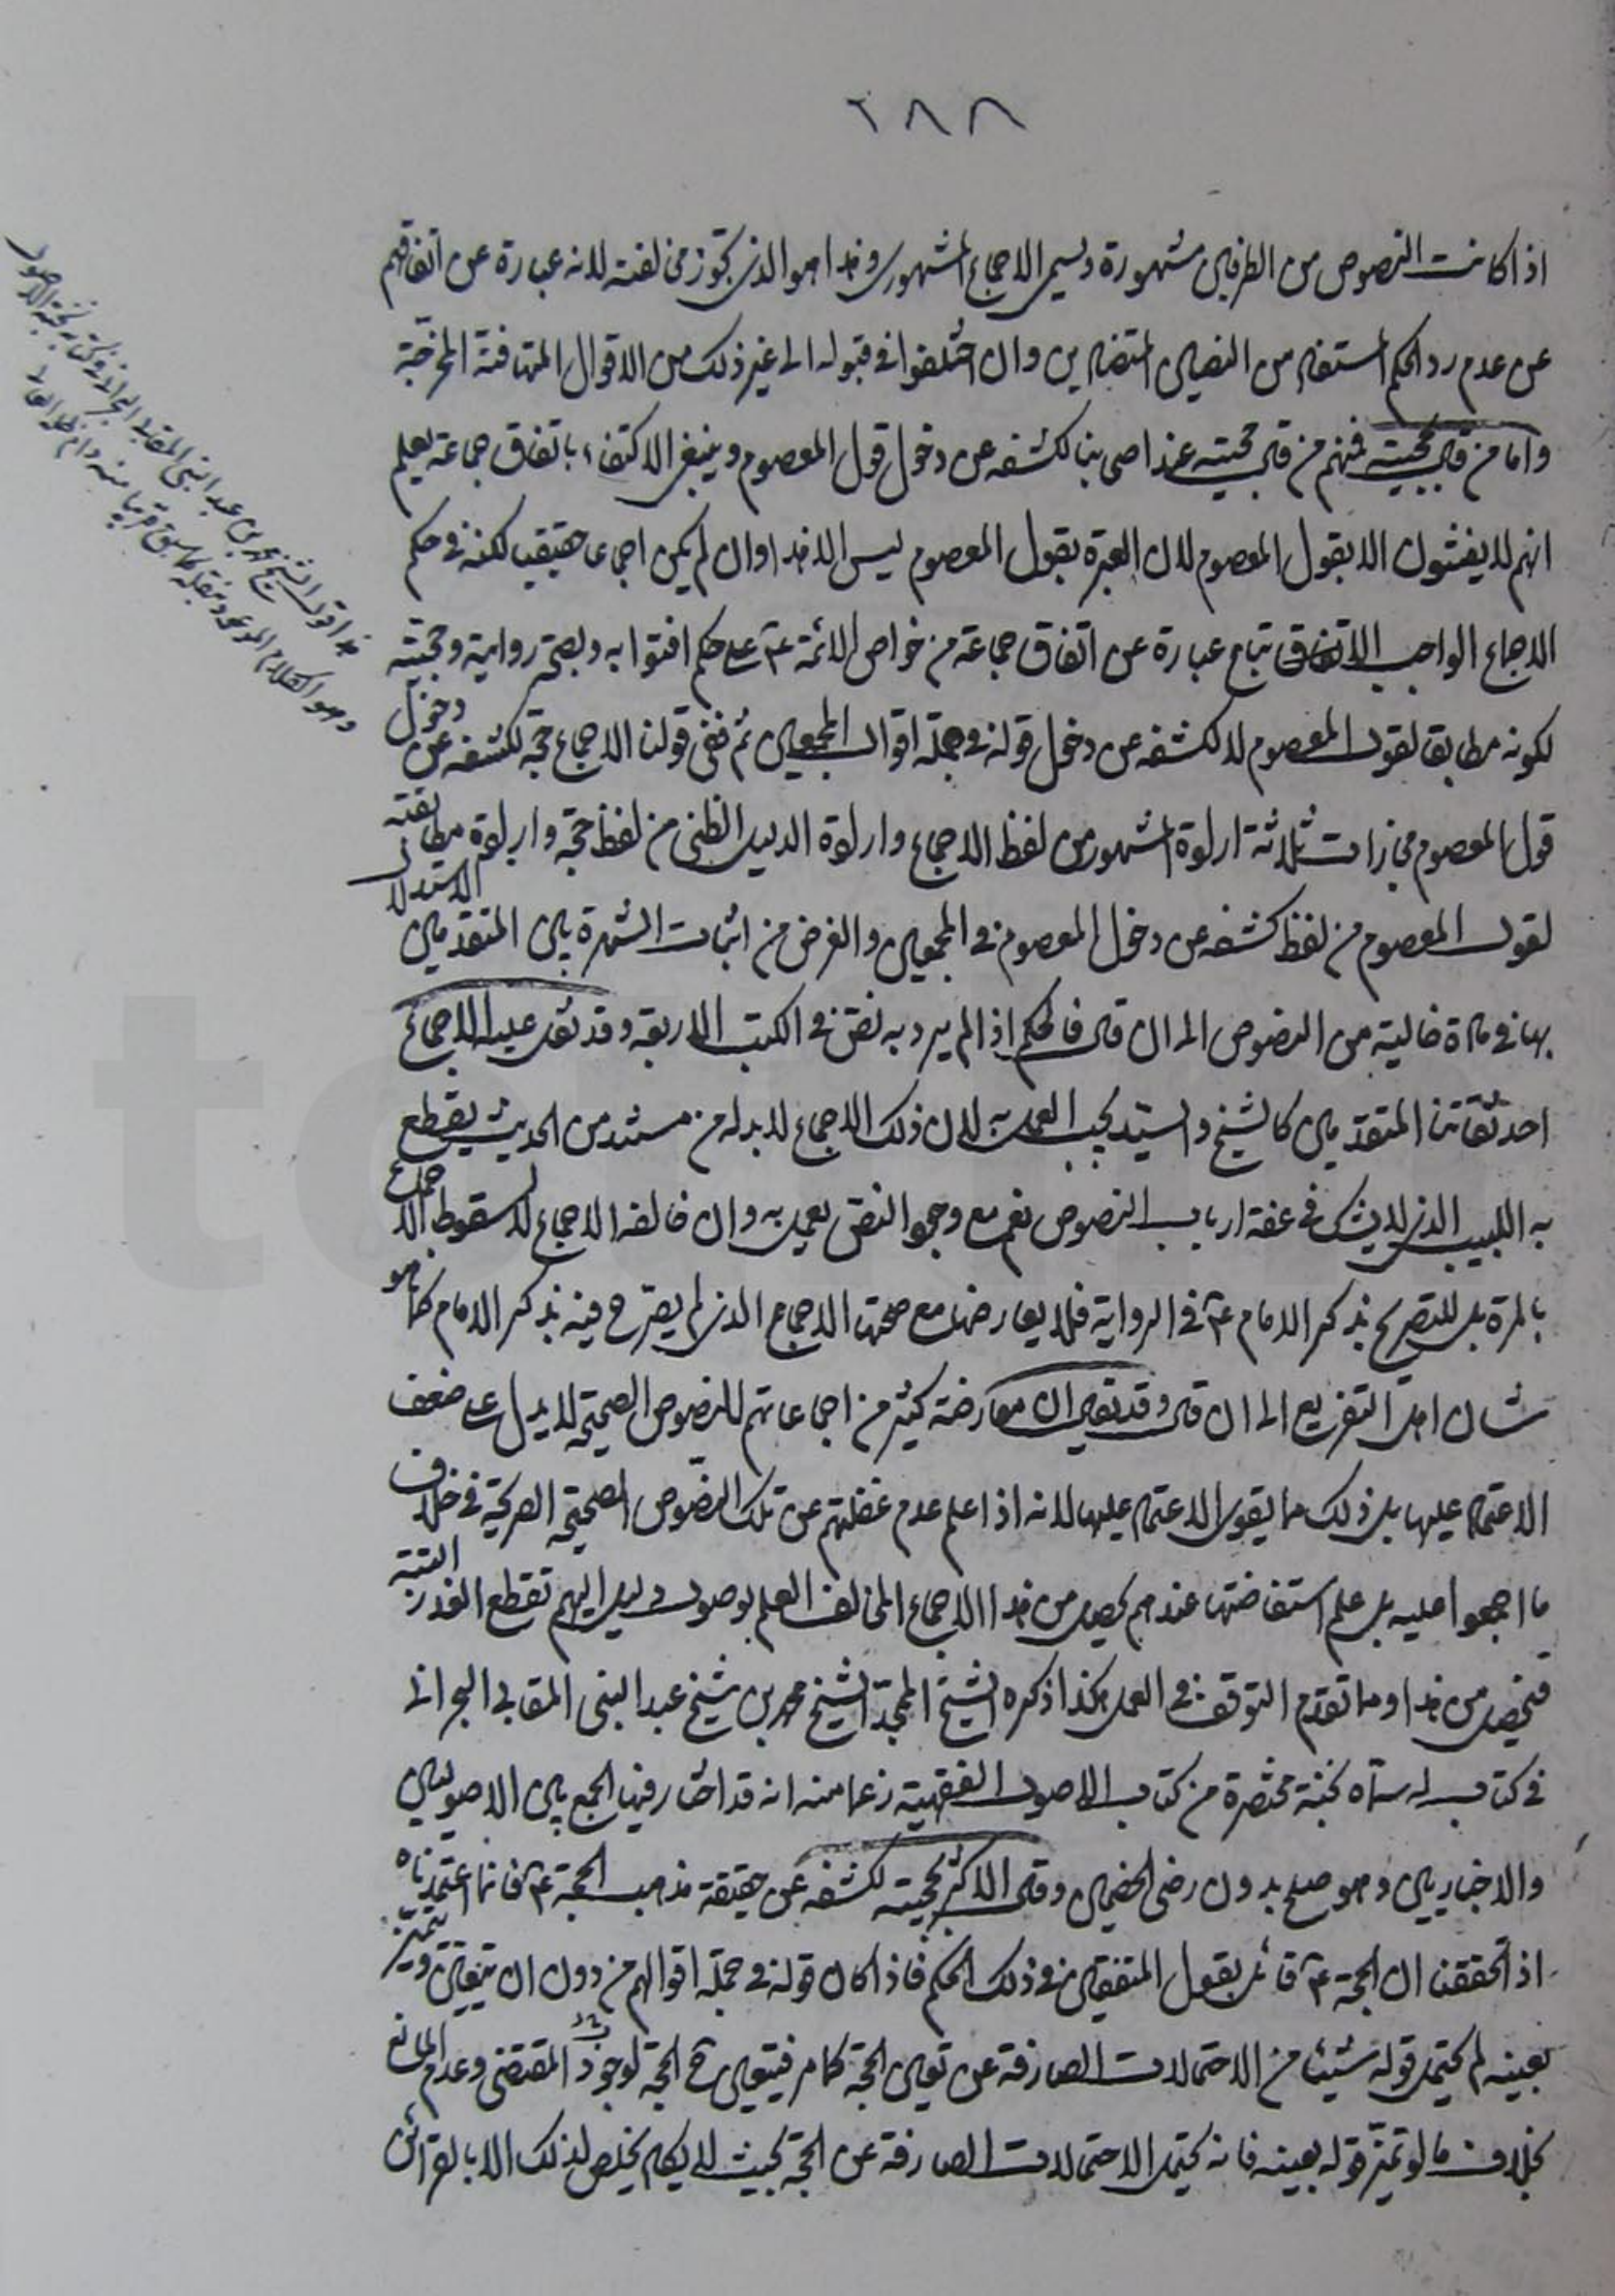 ٢٨٨
اذا كانت النصوص من الطرفين مشهورة ويسمى الاجماع المشهورى وهذا هو الذى تجوز مخالفته لانه عبارة عن اتفاقهم
عن عدم رد الحكم المستفاد من النصين المتضادين وان اختلفوا فى قبوله الى غير ذلك من الاقوال المتهافتة المزخرفة
واما من قال بحجيته فمنهم من قال بحجيته عند اصحابنا لكشفه عن دخول قول المعصوم وينبغى الاكتفاء باتفاق جماعة يعلم
انهم لا يفتون الا بقول المعصوم لان العبرة بقول المعصوم ليس الا هذا وان لم يكن اجماعا حقيقيا لكنه فى حكم
الاجماع الواجب الاتباع عبارة عن اتفاق جماعة من خواص الائمة ع على حكم افتوا به ولصحة رواية وحجيته
لكونه مطابقا لقول المعصوم لا لكشفه عن دخول قوله فى جملة اقوال المجمعين ثم ففى قولنا الاجماع حجة لكشفه عن دخول
قول المعصوم مجازات ثلاثة ارادة المشهور من لفظ الاجماع وارادة الدليل الظنى من لفظ حجة وارادة مطابقته
لقول المعصوم من لفظ كشفه عن دخول المعصوم فى المجمعين والغرض من اثبات الشهرة بين المتقدمين الاستدلال
بها فى مادة خالية من النصوص الى ان قال فالحكم اذا لم يرد به نص فى الكتب الاربعة وقد نقل عليه الاجماع
احد ثقاتنا المتقدمين كالشيخ والسيد يجب العمل به لان ذلك الاجماع لا بد له من مستند من الحديث يقطع
به اللبيب الذى لا يشك فى عفة ارباب النصوص نعم مع وجود النص يعمل به وان خالفه الاجماع لا لسقوط الاجماع
بالمرة بل للتصريح بذكر الامام ع فى الرواية فلا يعارضها مع صحتها الاجماع الذى لم يصرح فيه بذكر الامام كما هو
شان اهل التفريع الى ان قال وقد تقول ان معارضة كثير من اجماعاتهم للنصوص الصحيحة لا يدل على ضعف
الاعتماد عليها بل ذلك مما يقوى الاعتماد عليها لانه اذا علم عدم غفلتهم عن تلك النصوص الصحيحة الصريحة فى خلاف
ما اجمعوا عليه بل علم استفاضتها عندهم يحصل من هذا الاجماع المخالف العلم بوصول دليل اليهم تقطع العذر البتة
فتحصل من هذا وما تقدم التوقف فى العمل هكذا ذكره الشيخ المجد الشيخ محمد بن شيخ عبد النبى المقابى البحرانى
فى كتاب له سماه نخبة مختصرة من كتاب الاصول الفقهية زعما منه انه قد اختار فيها الجمع بين الاصوليين
والاخباريين وهو صلح بدون رضى الخصمين وقال الاكثر بحجيته لكشفه عن حقيقة مذهب الحجة ع فانما اعتمدناه
اذا تحققنا ان الحجة ع قائل بقول المتفقين فى ذلك الحكم فاذا كان قوله فى جملة اقوالهم من دون ان يتعين ويتميز
بعينه لم يحتمل قوله شيئا من الاحتمالات الصارفة عن تعين الحجة كما مر فيتعين ح الحجة لوجود المقتضى وعدم المانع
بخلاف ما لو تميز قوله بعينه فانه يحتمل الاحتمالات الصارفة عن الحجة بحيث لا يكاد يخلص لذلك الا بالقرائن